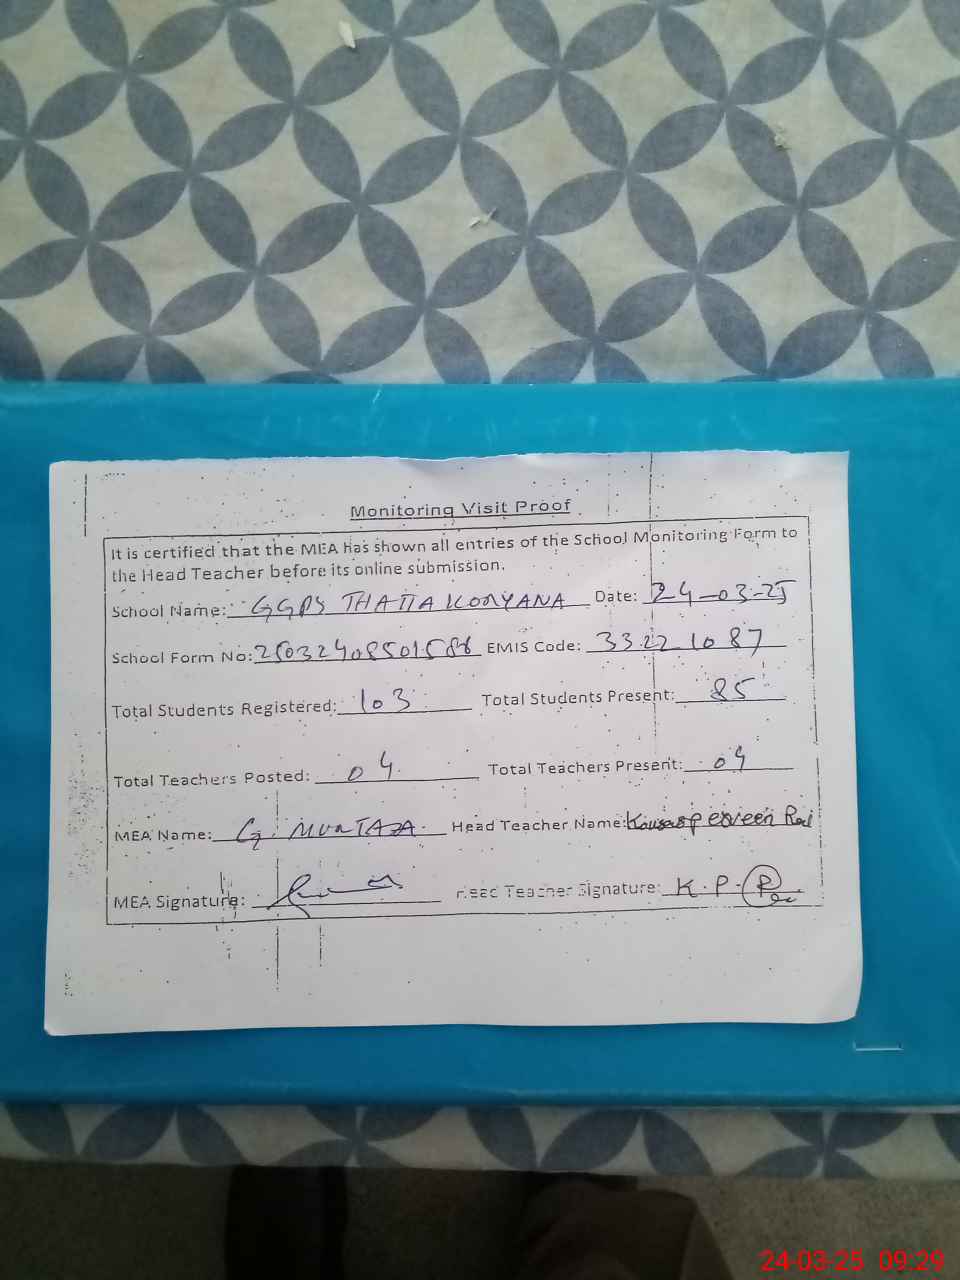 Monitoring Visit Proof
It is certified that the MEA has shown all entries of the School Monitoring Form to
the Head Teacher before its online submission.
School Name: GGPS THATTA KORYANA Date: 24-03-25
School Form No: 25032408501586 EMIS Code: 33221087
Total Students Registered: 103 Total Students Present: 85
Total Teachers Posted: 04 Total Teachers Present: 04
MEA Name: G. MURTAZA Head Teacher Name: Kousar Perveen
MEA Signature: Head Teacher Signature: K.P.R
24-03-25 09:29